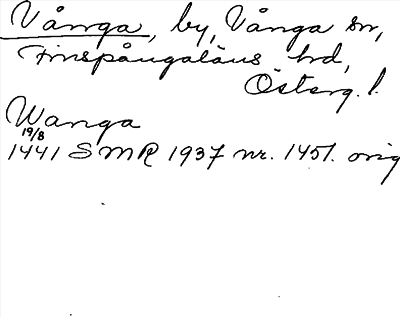 Vånga, by, Vånga sn,
Finspångaläns hd,
Österg. l.
Wanga
19/8
1441 SMR 1937 nr. 1451. orig